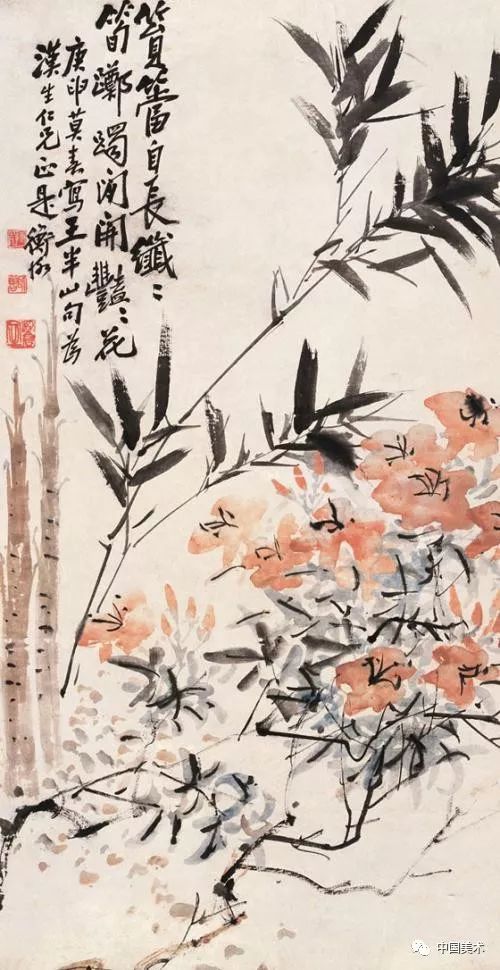 篔簹自長纖〻
筍躑躅閑開豔〻花
庚申莫春寫王半山句為
漢生仁兄正是衡恪
中国美术